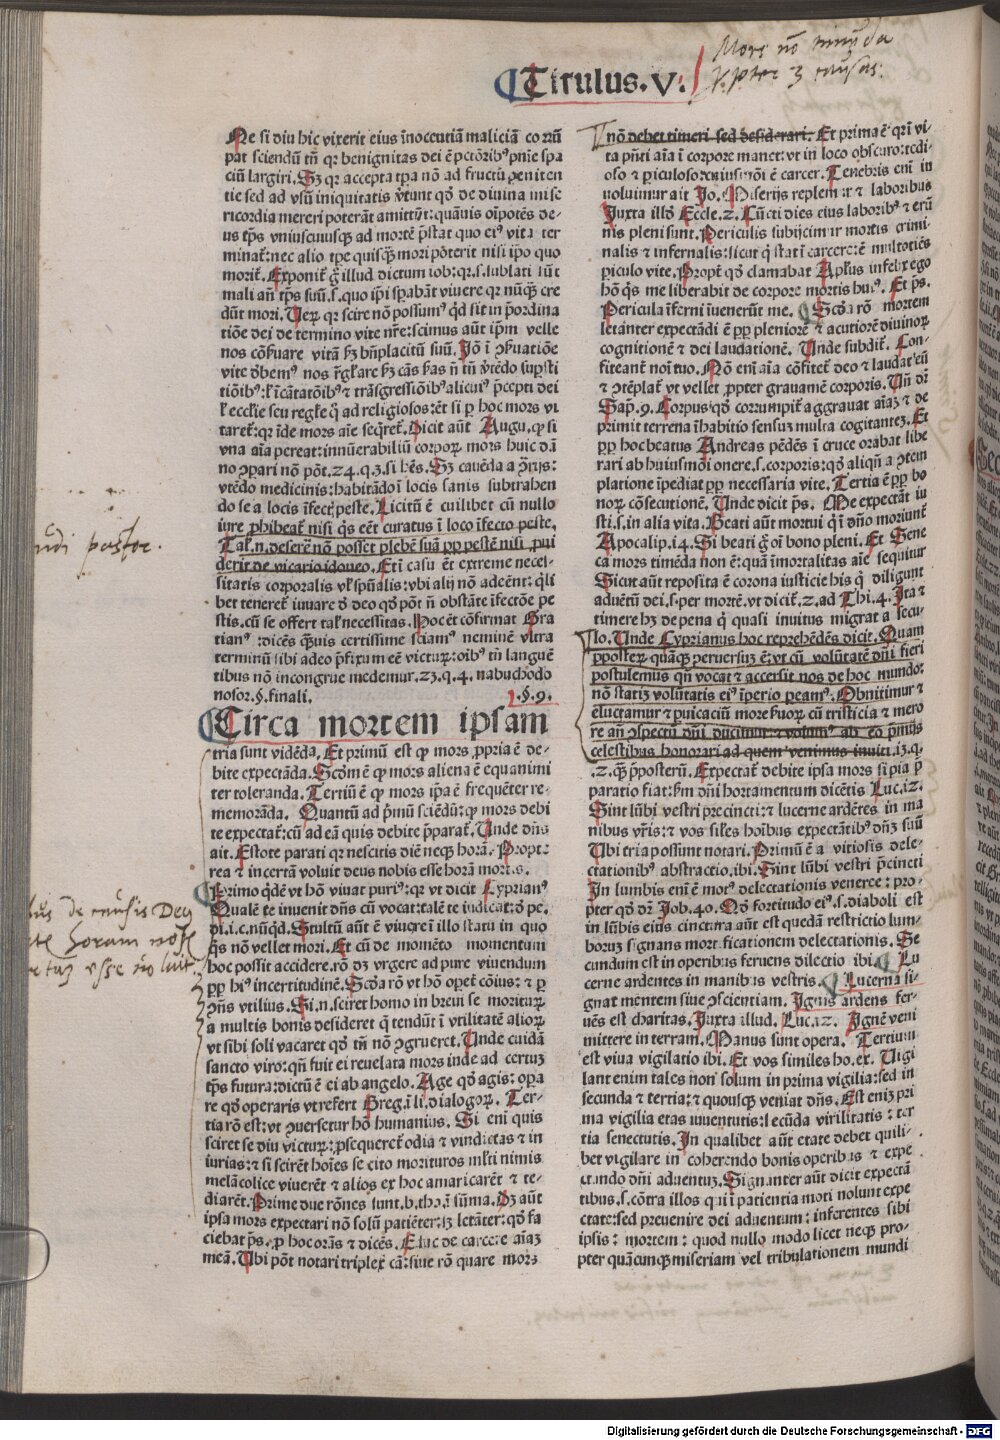 Mors nō timēda
ꝓpter 3 causas.
Titulus. V.
Ne si diu hic vixerit eius īnocentiā malicia corrū
pat sciendū tn̄ qꝛ benignitas dei ē pctōribꝰ pnīe spa
ciū largiri. Sꝫ qꝛ accepta tpa nō ad fructū peniten
tie sed ad vsū iniquitatis vertunt qđ de diuina mise
ricordia mereri poterāt amittūt: quāuis oīpotēs de-
us tps vniuscuiusqꝫ ad mortē pstat quo eiꝰ vita ter
minat: nec alio tpe quisqꝫ mori pōterit nisi ipo quo
morit. Exponit g̃ illud dictum iob: qꝛ. s. sublati sūt
mali an̄ tps suū. s. quo ipi sperabāt viuere qꝛ nūqꝫ cre
dūt mori. Ueꝝ qꝛ scire nō possumꝰ qd sit in pordina
tiōe dei de termino vite nr̄e: scimus aūt ipm velle
nos cōseruare vitā
tiōibꝰ: l' īcātatōibꝰ ⁊ trāsgressiōibꝰ alicuiꝰ pcepti dei
l' ecclie seu regule
taret: qꝛ īde mors aīe seqret. Dicit aūt Augu. ꝙ si
vna aīa pereat: innūerabiliū corpoꝝ mors huic dā
no ꝯpari nō pōt. 24. q. 3. si hēs. Sꝫ cauēda
vtēdo medicinis: habitādo ī locis sanis subtrahen
do se a locis īfectis peste. Licitū ē cuilibet cū nullo
iure phibeat nisi qs eēt curatus ī loco īfecto peste.
Tal'. n. deserē nō posset plebē suā ꝓp pestē nisi pui
derit de vicario idoneo. Etī casu ēt extreme neces-
sitatis corporalis vel spūalis: vbi alij nō adeēnt: qli
bet teneret iuuare
stis. cū se offert talis necessitas. Hoc ēt cōfirmat Gra
tianꝰ: dicēs
terminū sibi adeo pfixum eē victuꝝ: oibꝰ tn̄ langué
tibus nō incongrue medemur. 23. q. 4. nabuchodo
nosor. §. finali. §. 9.
Circa mortem ipsam
tria sunt vidēda. Et primū est ꝙ mors ppria ē de-
bite expectāda. Scdm ē ꝙ mors aliena ē equanimi
ter toleranda. Tertiū ē ꝙ mors ipa ē frequēter re-
memorāda. Quantū ad pmū sciēdū: ꝙ mors debi
te expectat: cū ad eā quis debite pparat. Unde dn̄s
ait. Estote parati qꝛ nescitis diē neqꝫ horā. Propte
rea ⁊ incertā voluit deus nobis esse horā mortis.
Primo qdē vt hō viuat puriꝰ: qꝛ vt dicit Cyprianꝰ
Qualē te inuenit dn̄s cū vocat: talē te iudicat: de pe.
di. i. c. nūqd. Stultū aūt ē viuere ī illo statu in quo
qs nō vellet mori. Et cū de momēto momentum
hoc possit accidere. rō dꝫ vrgere ad pure viuendum
ꝓp hiꝰ incertitudinē. Scda rō vt hō opet cōius: ⁊ p
ꝯns vtilius. Si. n. sciret homo in breui se morituꝝ
a multis bonis desideret q tendūt ī vtilitatē alioꝝ
vt sibi soli vacaret qd tn̄ nō ꝯgrueret. Unde cuidā
sancto viro: qn̄ fuit ei reuelata mors inde ad certuꝫ
tps futura: dictū ē ei ab angelo. Age qd agis: opa
re qd operaris vt refert Greg. ī li. dialogoꝝ. Ter-
tia rō est: vt ꝯuersetur hō humanius. Si eni quis
sciret se diu victuꝝ: psequeret odia ⁊ vindictas ⁊ in
iurias: ⁊ si scirēt hoies se cito morituros mlti nimis
melācolice viuerēt ⁊ alios ex hoc amaricarēt ⁊ te-
diarēt. Prime due rōnes sunt. b. tho. ī sūma. Dꝫ aūt
ipsa mors expectari nō solū patiēter: sꝫ letāter: qd fa
ciebat ps. ꝓ hoc orās ⁊ dicēs. Educ de carcere aīaꝫ
meā. Ubi pōt notari triplex cā: siue rō quare mors
nō debet timeri sed desiderari. Et prima ē qꝛ ī vi-
ta pn̄ti aīa ī corpore manet: vt in loco obscuro: tedi-
oso ⁊ piculoso: cuiusmōi ē carcer. Tenebris enī in
uoluimur ait Jo. Miserijs replemur ⁊ laboribus
Juxta illd Eccle. 2. Cūcti dies eius laboribꝰ ⁊ erū
nis pleni sunt. Periculis subijcimur mortis crimi-
nalis ⁊ infernalis: sicut q stat ī carcere: ē multoties
piculo vite. Propt qd clamabat Aplus infelix ego
hō qs me liberabit de corpore mortis huiꝰ. Et ps.
Pericula iferni iuenerūt me. Scda rō mortem
letanter expectādi ē ꝓp pleniorē ⁊ acutiorē diuinoꝝ
cognitionē ⁊ dei laudationē. Unde subdit. Con-
fiteant noī tuo. Nō enī aīa cōfitet deo ⁊ laudat eū
⁊ ꝯtēplat vt vellet propter grauamē corporis. Un̄ dr̄
Sap. 9. Corpus qd corrumpit aggrauat aīaꝫ ⁊ de
primit terrena īhabitio sensuꝫ multa cogitanteꝫ. Et
ꝓp hoc beatus Andreas pēdēs ī cruce orabat libe
rari ab huiusmōi onere. s. corporis: qd aliqn̄ a ꝯtem
platione īpediat ꝓp necessaria vite. Tertia ē ꝓp bo
noꝝ cōsecutionē. Unde dicit ps. Me expectāt iu
sti. s. in alia vita. Beati aūt mortui q ī dn̄o moriunt
Apocalip. i4. Si beati g̃ oī bono pleni. Et Sene
ca mors timēda non ē: quā īmortalitas aīe sequitur
Sicut aūt reposita ē corona iusticie his q diligunt
aduētū dei. s. per mortē. vt dicit. 2. ad Thi. 4. Ita ⁊
timere hꝫ de pena q quasi inuitus migrat a secu-
lo. Unde Cyprianus hoc reprehēdēs dicit. Quam
pposteꝝ quāqꝫ peruersuꝫ ē: vt cū volūtatē dn̄i fieri
postulemus qn̄ vocat ⁊ accersit nos de hoc mundo:
nō statiꝫ volūtatis eiꝰ īperio peamꝰ. Obnitimur ⁊
eluctamur ⁊ puicaciū more seruoꝝ cū tristicia ⁊ mero
re an̄ ꝯspectū dn̄i ducimur: ⁊ volumꝰ ab eo pmijs
celestibus honorari ad quem venimus inuiti. i3. q.
.2. qꝫ pposterū. Expectat debite ipsa mors si pia p
paratio fiat: sm dn̄i hortamentum dicētis Luc. i2.
Sint lūbi vestri precincti: ⁊ lucerne ardētes in ma
nibus vr̄is: ⁊ vos siles hoibus expectātibꝰ dn̄ꝫ suū
Ubi tria possunt notari. Primū ē a vitiosis dele-
ctationibꝰ abstractio. ibi. Sint lūbi vestri pcincti
In lumbis enī ē motꝰ delectationis veneree: pro-
pter qd dr̄ Job. 40. Qd fortitudo eiꝰ. s. diaboli est
in lūbis eius cinctura aūt est quedā restrictio lum-
boruꝫ signans mortificationem delectationis. Se
cundum est in operibus feruens dilectio ibi. Lu
cerne ardentes in manibus vestris. Lucerna si-
gnat mentem siue ꝯscientiam. Ignis ardens fer-
uēs est charitas. Juxta illud. Luc. i2. Ignē veni
mittere in terram. Manus sunt opera. Tertium
est viua vigilatio ibi. Et vos similes ho. ex. Uigi
lant enim tales non solum in prima vigilia: sed in
secunda ⁊ tertia: ⁊ quousqꝫ veniat dn̄s. Est eniꝫ pri
ma vigilia etas iuuentutis: secūda virilitatis: ter
tia senectutis. In qualibet aūt etate debet quili-
bet vigilare in coherendo bonis operibus ⁊ expe
ctando dn̄i aduentuꝫ. Signanter aūt dicit expectā
tibus. s. cōtra illos qui ī patientia moti nolunt expe
ctare: sed preuenire dei aduentum: inferentes sibi
ipsis: mortem: quod nullo modo licet neqꝫ pro-
pter quācunqꝫ miseriam vel tribulationem mundi
Digitalisierung gefördert durch die Deutsche Forschungsgemeinschaft - DFG